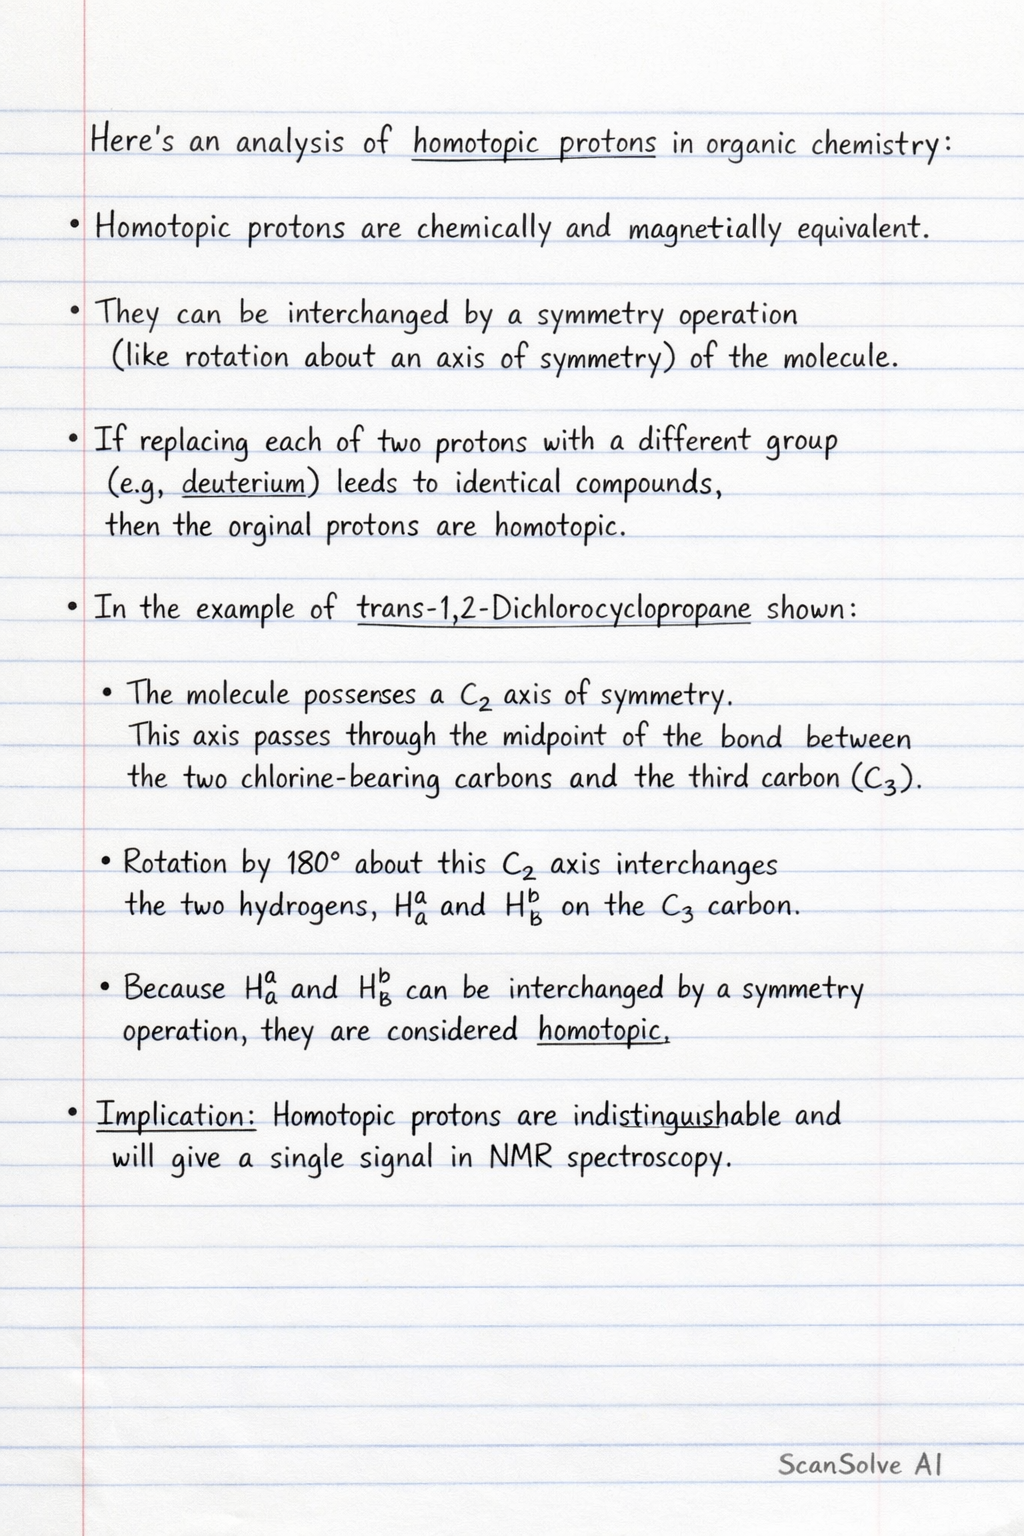 Here's an analysis of homotopic protons in organic chemistry:
• Homotopic protons are chemically and magnetially equivalent.
• They can be interchanged by a symmetry operation
(like rotation about an axis of symmetry) of the molecule.
• If replacing each of two protons with a different group
(e.g, deuterium) leeds to identical compounds,
then the orginal protons are homotopic.
• In the example of trans-1,2-Dichlorocyclopropane shown:
• The molecule possenses a C₂ axis of symmetry.
This axis passes through the midpoint of the bond between
the two chlorine-bearing carbons and the third carbon (C₃).
• Rotation by 180° about this C₂ axis interchanges
the two hydrogens, Hᵃₐ and Hᵇ_B on the C₃ carbon.
• Because Hᵃₐ and Hᵇ_B can be interchanged by a symmetry
operation, they are considered homotopic.
• Implication: Homotopic protons are indistinguishable and
will give a single signal in NMR spectroscopy.
ScanSolve AI